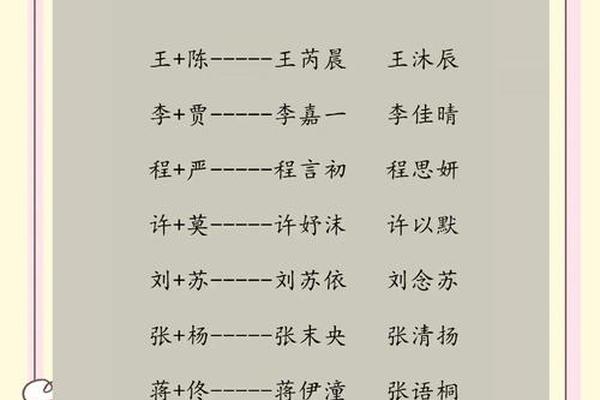 王+陈-----王芮晨 王沐辰
李+贾-----李嘉一 李佳晴
程+严-----程言初 程思妍
许+莫-----许妤沫 许以默
刘+苏-----刘苏依 刘念苏
张+杨-----张末央 张清扬
蒋+佟-----蒋伊潼 张语桐